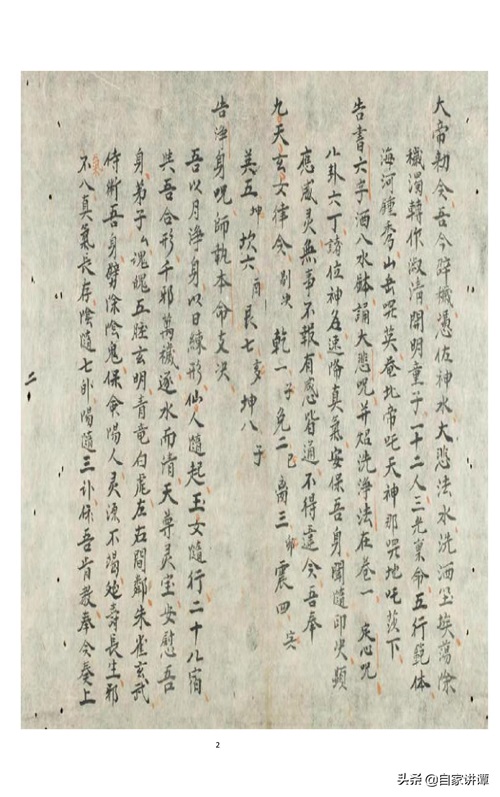 大帝勅令吾今辟穢憑仗神水大悲法水洗洒塵埃蕩除
穢濁轉作淑清開明童子一十二人三光稟令五行範体
海河鍾秀山岳咒莫巷北帝吒天神那咒地吒茨下
告書六字洒八水缽誦大悲咒并炤洗淨法在卷一 定心咒
八卦六丁諸位神名速降真氣安保吾身聞隨即火顯
應感灵無事不報有感皆通不得違令吾奉
九天玄女律令 别决 乾一 子 免二 巳 离三 卯 震四 寅
美五 坤 坎六 酉 艮七 亥 坤八 子
告淨身咒師執本命支决
吾以月淨身以日練形仙人隨起玉女隨行二十八宿
與吾合形千邪萬穢逐水而清天尊灵宝安慰吾
身弟子厶魂魄五臟玄明青竜白虎左右間鄰朱雀玄武
侍衛吾身劈除陰鬼保命陽人灵源不竭延寿長生邪
不入真氣長存陰隨七外陽隨三卦保吾肯教奉令奏上
二
2
头条 @自家讲谭